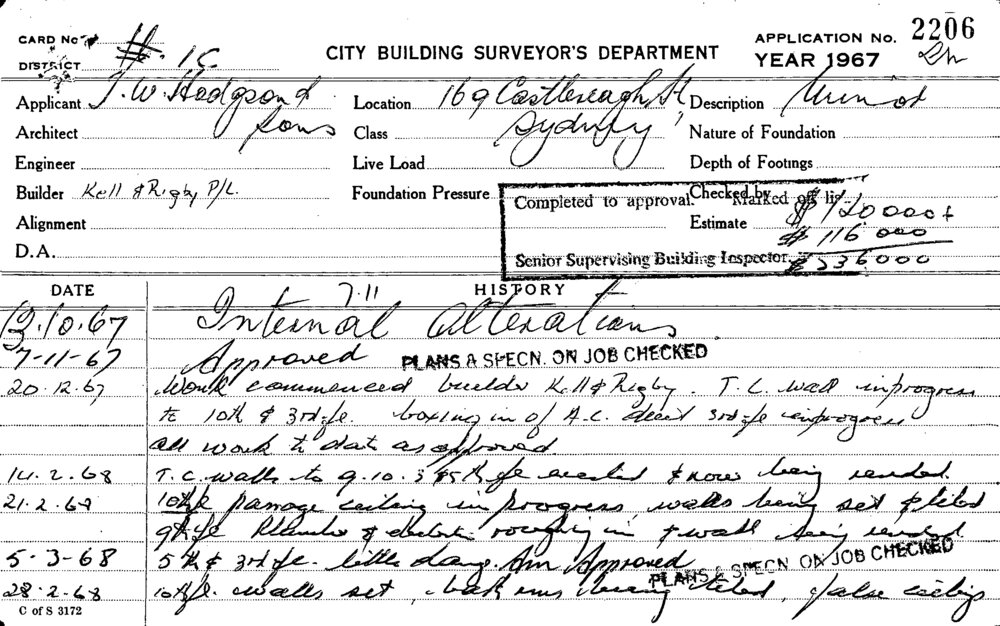 CARD No 1C
DISTRICT
CITY BUILDING SURVEYOR'S DEPARTMENT
APPLICATION No. 2206
YEAR 1967
Applicant T.W. Hodgson & Sons
Location 169 Castlereagh St Sydney
Description Minor
Architect
Class
Nature of Foundation
Engineer
Live Load
Depth of Footings
Builder Kell & Rigby P/L.
Foundation Pressure
Checked by
Completed to approval. Marked off
Alignment
Estimate $ 120000
$ 116000
D.A.
Senior Supervising Building Inspector.
$ 236000
DATE HISTORY
7.11
.10.67 Internal Alterations
7-11-67 Approved PLANS & SPECN. ON JOB CHECKED
20.12.67 Work commenced builder Kell & Rigby. T.C. wall in progress
to 10th & 3rd fl. boxing in of A.C. duct 3rd fl in progress
all work to date as approved
14.2.68 T.C. walls to 9.10.3 & 5th fl erected & now being rended.
21.2.68 10th fl passage ceiling in progress, walls being set & tiled
9th fl & roughing in & wall being rended
5.3.68 5th & 3rd fl. Approved PLANS & SPECN ON JOB CHECKED
28.2.68 10th fl. walls set, being tiled, false ceilings
C of S 3172